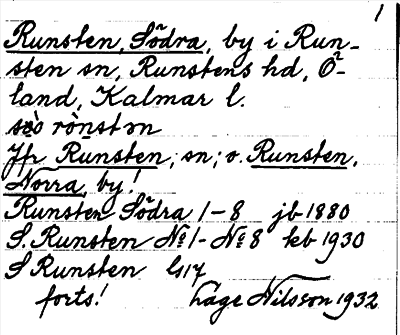 1
Runsten, Södra, by i Run-
sten sn, Runstens hd, Ö-
land, Kalmar l.
rönstən
Jfr Runsten, sn; o. Runsten,
Norra, by!
Runsten Södra 1-8 jb 1880
S. Runsten No 1- No 8 kb 1930
S Runsten
forts! Låge Nilsson 1932